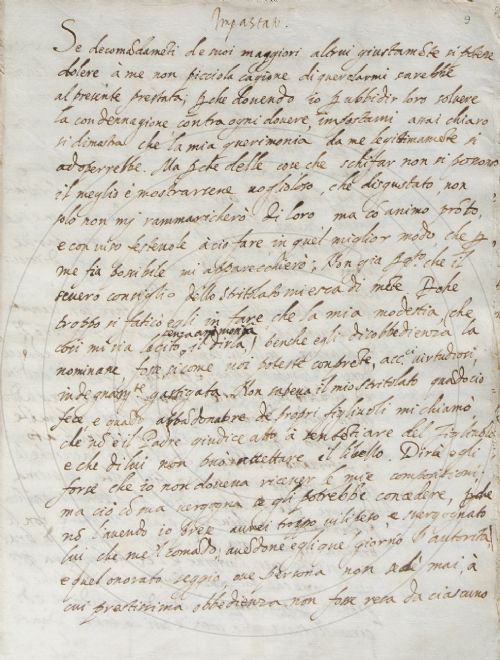 Impastato.
9
Se de comãdamẽti de suoi maggiori altrui giustamẽte si debbe
dolere à me non picciola cagione di querelarmi sarebbe
al presente prestata; ꝑche dovendo io ꝑ ubbidir loro solvere
la condennagione contra ogni dovere, assai chiaro
si dimostra che la mia querimonia da me legitimamẽte si
adoperrebbe. Ma ꝑche delle cose che schifar non si possono
il meglio è mostrarsene voglioloso, che disgustato, non
solo non my rammaricherò di loro ma cõ animo prõto,
e con viso festevole a ciò fare in quel miglior modo che ꝑ
me fia possibile mi apparecchierò; Non già che il
severo consiglio dello Stritolato m'esca di mẽte
troppo si faticò egli in fare che la mia modestia, che
così mi sia lecito senza cerimonia il dirla, benche egli disobbedienza la
nominane fosse sicome voi poteste virtudiosi
indegnamẽte gastigata. Non sapeva il mio Stritolato quãdo ciò
fece, e quãdo de propri figliuoli mi chiamò
che nõ è il Padre giudice atto à sentẽtiare del figliuolo
e che di lui non può accettare il libello. Dirà egli
forse che io non doveva ricever le mie
ma ciò cõ mia vergogna se gli potrebbe concedere, ꝑche
nõ l'avendo io avrei troppo vilipeso, e svergognato
lui che me'l comãdò, avẽdone egli quel giorno l'autorità,
e quel onorato seggio, ove persona non sedè mai, à
cui prestissima obbedienza non fosse resa da ciascuno